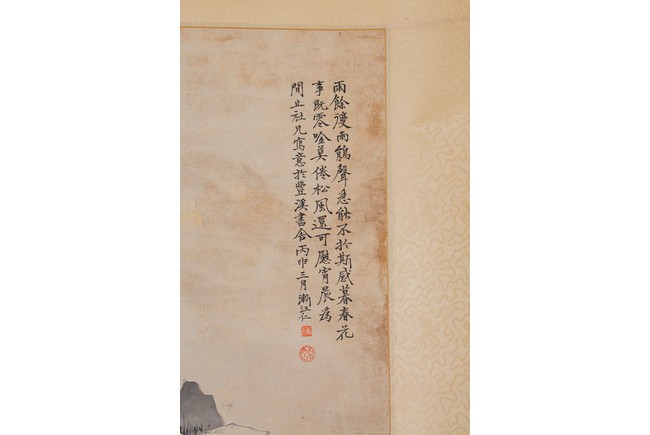 雨餘復雨鵑聲急能不於斯感暮春花
事既零吟莫倦松風還可慰宵晨為
閒止社兄寫意於豐溪書舍丙申三月漸江仁